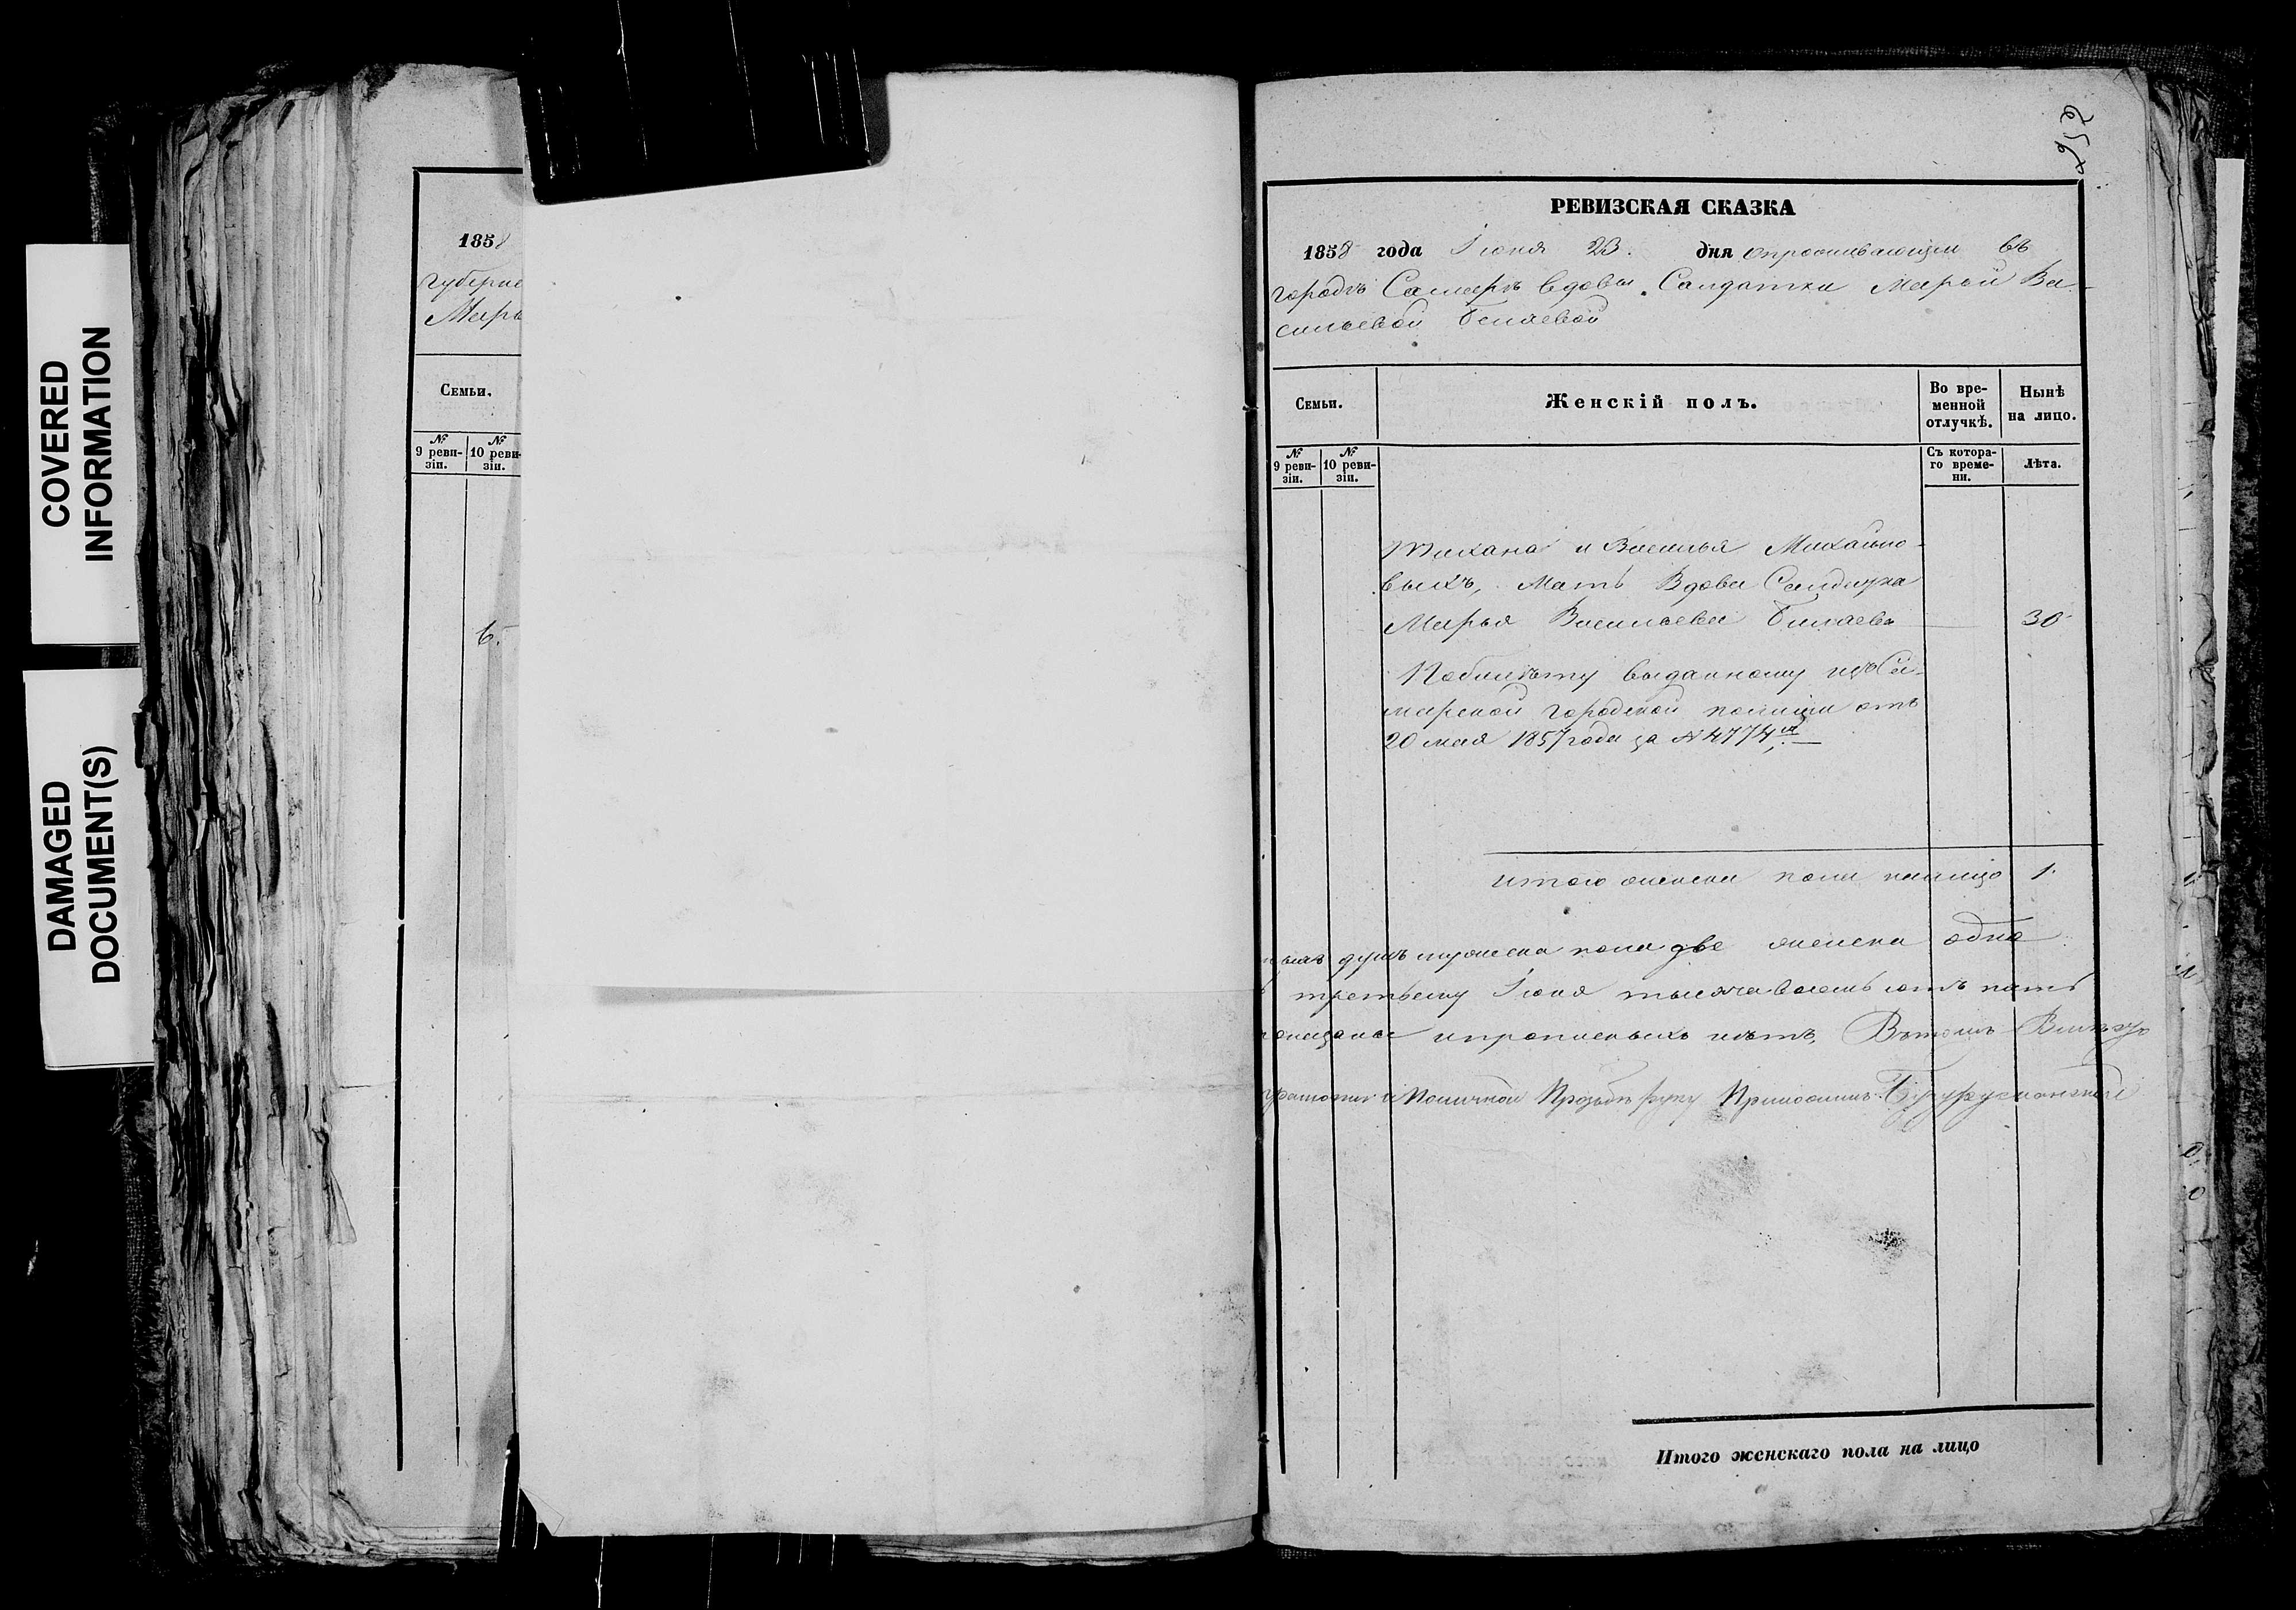 COVERED
INFORMATION
DAMAGED
DOCUMENT(S)
1858
губерне
Марь
Семьи.
№ 9 ревизіи.
№ 10 реви-зіи.
6.
РЕВИЗСКАЯ СКАЗКА
1858 года Іюня 23. дня о проживающей въ
городѣ Самарѣ вдовы Салдатки Марьи Ва-
сильевой Беляевой
Семьи.
Женскій полъ.
Во вре-
менной
отлучкѣ.
Нынѣ
на лицо.
№
9 реви-
зіи.
№
10 реви-
зіи.
Съ котора-
го време-
ни.
Лѣта.
и Василья Михайло-
выхъ, Мать Вдова Салдатка
Марья Васильева Биляева 30
По билѣту выданному изъ Са-
марской городской полиціи отъ
20 мая 1857 года за № 4774.
Итого женска пола налицо 1.
душъ мужеска пола две женска одна
третьему Іюня тысяча восемь сотъ пять
и прописныхъ нѣтъ, Въ томъ
личной прозьбѣ руку приложилъ Бугурусланской
Итого женскаго пола на лицо